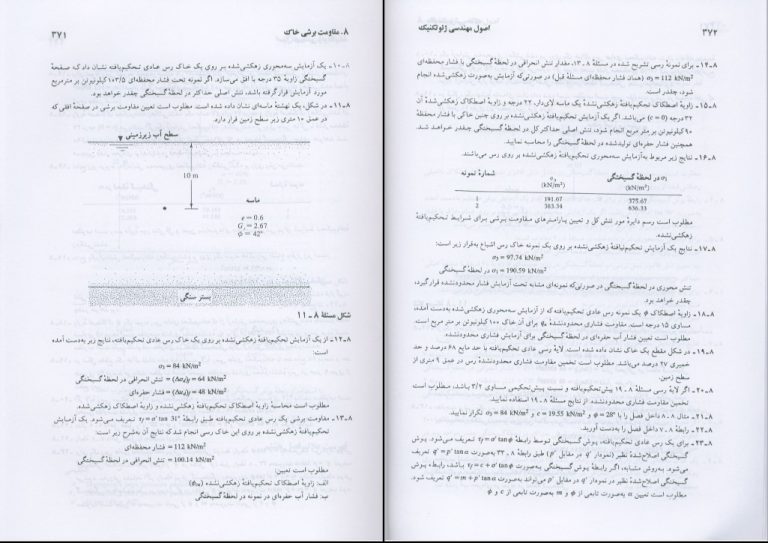 ۳۷۱
۸ـ مقاومت برشی خاک
۸ـ۱۰ـ یک آزمایش سه‌محوری زهکشی‌شده بر روی یک خاک رس عادی تحکیم‌یافته نشان داد که صفحهٔ
گسیختگی زاویهٔ ۳۵ درجه با افق می‌سازد. اگر نمونه تحت فشار محفظه‌ای ۱۰۳/۵ کیلونیوتن بر مترمربع
مورد آزمایش قرار گرفته باشد، تنش اصلی حداکثر در لحظهٔ گسیختگی چقدر خواهد بود.
۸ـ۱۱ـ در شکل، یک نهشتهٔ ماسه‌ای نشان داده شده است. مطلوب است تعیین مقاومت برشی در صفحهٔ افقی که
در عمق ۱۰ متری زیر سطح زمین قرار دارد.
سطح آب زیرزمینی
10 m
ماسه
e = 0.6
Gs = 2.67
φ = 42°
بستر سنگی
شکل مسئلهٔ ۸ـ۱۱
۸ـ۱۲ـ از یک آزمایش تحکیم‌یافتهٔ زهکشی‌نشده بر روی یک خاک رس عادی تحکیم‌یافته، نتایج زیر به‌دست آمده
است:
σ₃ = 84 kN/m²
تنش انحرافی در لحظهٔ گسیختگی = (Δσd)f = 64 kN/m²
فشار حفره‌ای = (Δud)f = 48 kN/m²
مطلوب است محاسبهٔ زاویهٔ اصطکاک تحکیم‌یافتهٔ زهکشی‌نشده و زاویهٔ اصطکاک زهکشی‌شده.
۸ـ۱۳ـ مقاومت برشی یک رس عادی تحکیم‌یافته طبق رابطهٔ τf = σ' tan 31° تعریف می‌شود. یک آزمایش
تحکیم‌یافتهٔ زهکشی‌نشده بر روی این خاک رسی انجام شد که نتایج آن به‌شرح زیر است:
فشار محفظه‌ای = 112 kN/m²
تنش انحرافی در لحظهٔ گسیختگی = 100.14 kN/m²
مطلوب است تعیین:
الف: زاویهٔ اصطکاک تحکیم‌یافتهٔ زهکشی‌نشده
ب: فشار آب حفره‌ای در نمونه در لحظهٔ گسیختگی
اصول مهندسی ژئوتکنیک
۳۷۲
۸ـ۱۴ـ برای نمونه رسی تشریح شده در مسئلهٔ ۸ـ۱۳، مقدار تنش انحرافی در لحظهٔ گسیختگی با فشار محفظه‌ای
σ₃ = 112 kN/m² (همان فشار محفظه‌ای مسئلهٔ قبل) در صورتی‌که آزمایش به‌صورت زهکشی‌شده انجام
شود، چقدر است.
۸ـ۱۵ـ زاویهٔ اصطکاک تحکیم‌یافتهٔ زهکشی‌نشدهٔ یک ماسه لای‌دار، ۲۲ درجه و زاویهٔ اصطکاک زهکشی‌شدهٔ آن
۳۲ درجه (c = 0) می‌باشد. اگر یک آزمایش تحکیم‌یافتهٔ زهکشی‌نشده بر روی چنین خاکی با فشار محفظهٔ
۹۰ کیلونیوتن بر متر مربع انجام شود، تنش اصلی حداکثر کل در لحظهٔ گسیختگی چقدر خواهد شد.
همچنین فشار حفره‌ای تولیدشده در لحظهٔ گسیختگی را محاسبه نمایید.
۸ـ۱۶ـ نتایج زیر مربوط به‌آزمایش سه‌محوری تحکیم‌یافتهٔ زهکشی‌نشده بر روی رس می‌باشند.
شمارهٔ نمونه σ₃ (kN/m²) σ₁ در لحظهٔ گسیختگی (kN/m²)
1 191.67 375.67
2 383.34 636.33
مطلوب است رسم دایرهٔ مور تنش کل و تعیین پارامترهای مقاومت برشی برای شرایط تحکیم‌یافتهٔ
زهکشی‌نشده.
۸ـ۱۷ـ نتایج یک آزمایش تحکیم‌نیافتهٔ زهکشی‌نشده بر روی یک نمونه خاک رس اشباع به‌قرار زیر است:
σ₃ = 97.74 kN/m²
σ₁ = 190.59 kN/m² در لحظهٔ گسیختگی
تنش محوری در لحظهٔ گسیختگی در صورتی‌که نمونه‌ای مشابه تحت آزمایش فشار محدودنشده قرار گیرد،
چقدر خواهد بود.
۸ـ۱۸ـ زاویهٔ اصطکاک φ یک نمونه رس عادی تحکیم‌یافته که از آزمایش سه‌محوری زهکشی‌شده به‌دست آمده،
مساوی ۱۵ درجه است. مقاومت فشاری محدودنشدهٔ qu برای آن خاک ۱۰۰ کیلونیوتن بر متر مربع است.
مطلوب است تعیین فشار آب حفره‌ای در لحظهٔ گسیختگی برای آزمایش فشاری محدودنشده.
۸ـ۱۹ـ در شکل مقطع یک خاک نشان داده شده است. لایهٔ رسی عادی تحکیم‌یافته با حد مایع ۶۸ درصد و حد
خمیری ۲۷ درصد می‌باشد. مطلوب است تخمین مقاومت فشاری محدودنشدهٔ رس در عمق ۹ متری از
سطح زمین.
۸ـ۲۰ـ اگر لایهٔ رسی مسئلهٔ ۸ـ۱۹ پیش‌تحکیم‌یافته و نسبت پیش‌تحکیمی مساوی ۳/۲ باشد، مطلوب است
تخمین مقاومت فشاری محدودنشده. از نتایج مسئلهٔ ۸ـ۱۹ استفاده نمایید.
۸ـ۲۱ـ مثال ۸ـ۸ داخل فصل را با φ = 28° و c = 19.55 kN/m² و σ₃ = 84 kN/m² تکرار نمایید.
۸ـ۲۲ـ رابطهٔ ۸ـ۷ داخل فصل را به‌دست آورید.
۸ـ۲۳ـ برای یک رس عادی تحکیم‌یافته، پوش گسیختگی توسط رابطهٔ τf = σ' tanφ تعریف می‌شود. پوش
گسیختگی اصلاح‌شدهٔ نظیر (نمودار q' در مقابل p') طبق رابطهٔ ۸ـ۳۲ به‌صورت q' = p' tan α تعریف
می‌شود. به‌روش مشابه، اگر رابطهٔ پوش گسیختگی به‌صورت τf = c + σ' tanφ باشد، رابطهٔ پوش
گسیختگی اصلاح‌شدهٔ نظیر در نمودار q' در مقابل p' می‌تواند به‌صورت q' = m + p' tan α تعریف شود.
مطلوب است تعیین α به‌صورت تابعی از φ و m به‌صورت تابعی از c و φ